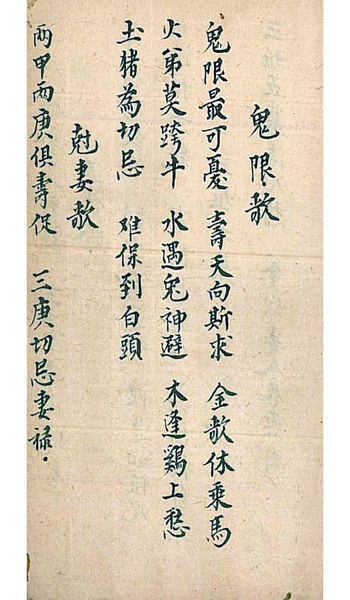 鬼限歌
鬼限最可憂 壽夭向斯求 金歌休乘馬
火弟莫跨牛 水遇兔神避 木逢鷄上愁
土猪為切忌 难保到白頭
尅妻歌
兩甲兩庚俱壽促 三庚切忌妻祿.